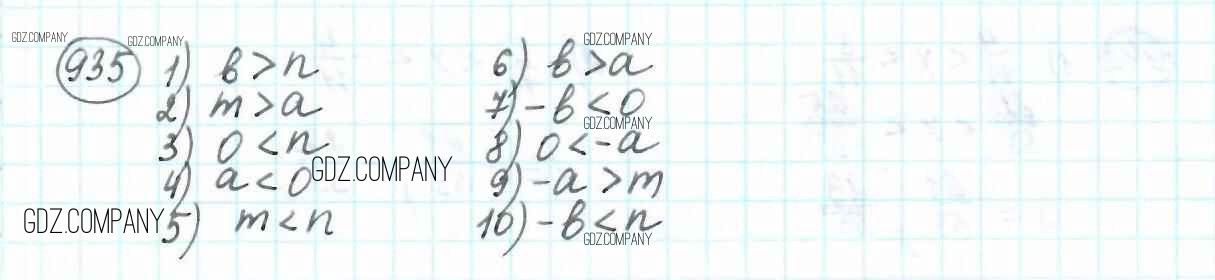 GDZ.COMPANY GDZ.COMPANY GDZ.COMPANY
935 1) b > n 6) b > a
2) m > a 7) -b < 0
GDZ.COMPANY
3) 0 < n 8) 0 < -a
GDZ.COMPANY
4) a < 0 9) -a > m
GDZ.COMPANY 5) m < n 10) -b < n
GDZ.COMPANY